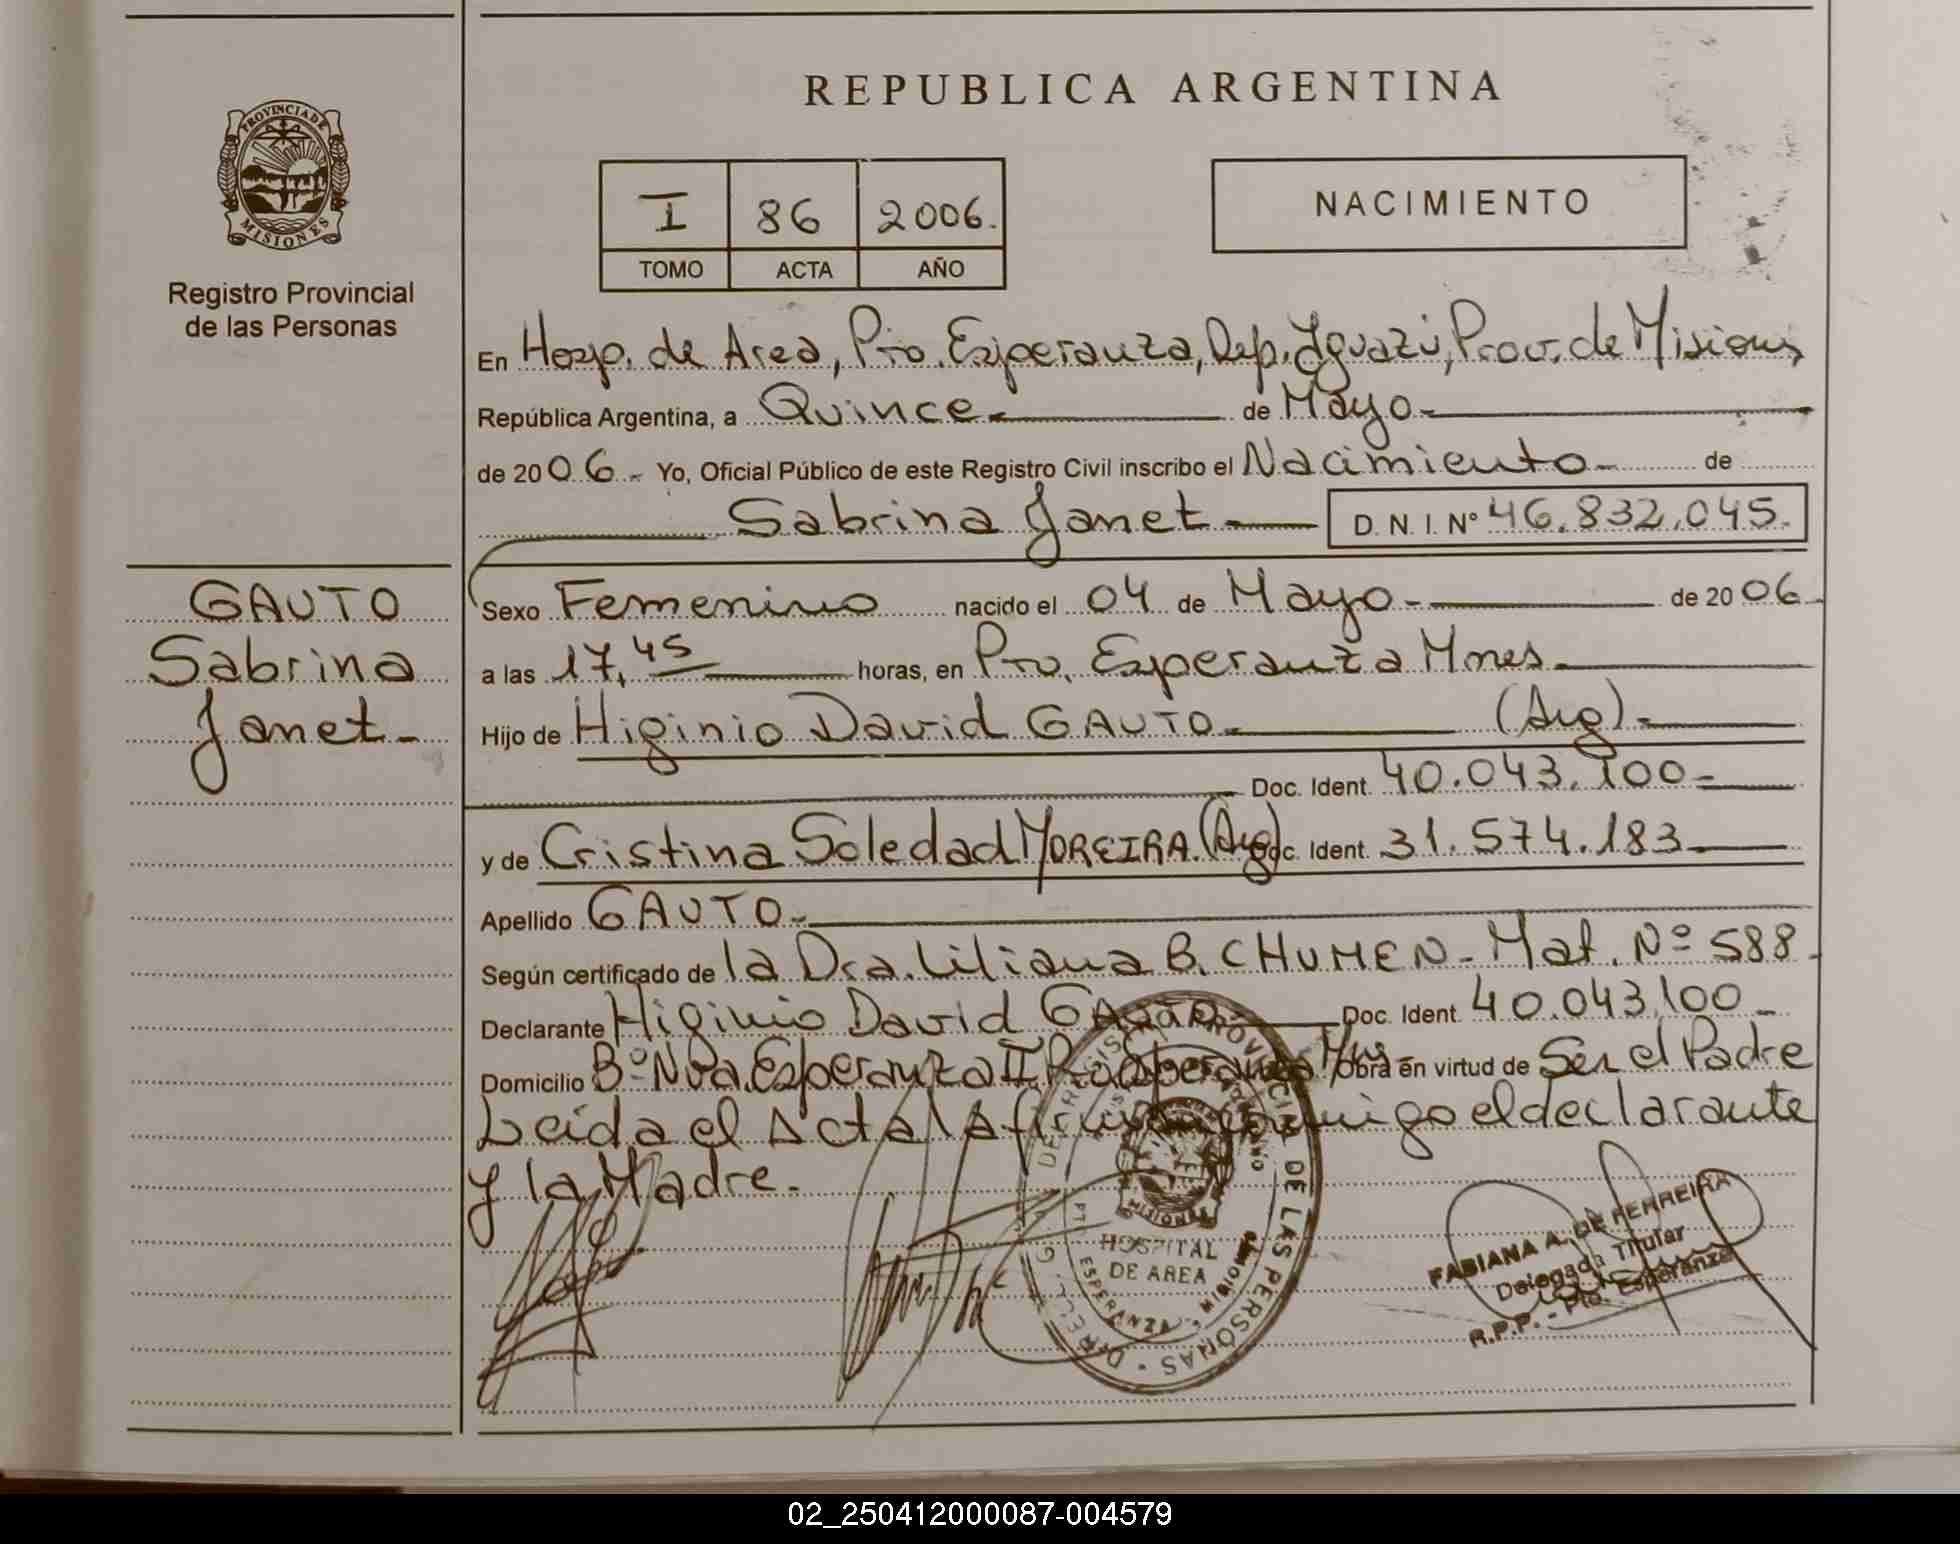 REPUBLICA ARGENTINA
PROVINCIA DE
MISIONES
Registro Provincial
de las Personas
I 86 2006.
TOMO ACTA AÑO
NACIMIENTO
En Hosp. de Area, Pto. Esperanza, Dep. Iguazú, Prov. de Misiones
República Argentina, a Quince de Mayo
de 2006.- Yo, Oficial Público de este Registro Civil inscribo el Nacimiento de
Sabrina Janet D. N. I. Nº 46.832.045.
GAUTO
Sabrina
Janet
Sexo Femenino nacido el 04 de Mayo de 2006
a las 17,45 horas, en Pto. Esperanza Mnes.
Hijo de Higinio David GAUTO (Arg)
Doc. Ident. 40.043.100
y de Cristina Soledad MOREIRA. (Arg) Doc. Ident. 31.574.183
Apellido GAUTO
Según certificado de la Dra. Liliana B. CHUMEN - Mat. Nº 588.
Declarante Higinio David GAUTO Doc. Ident. 40.043.100
Domicilio Bº Nva. Esperanza II Pto Esperanza Mns Obra en virtud de Ser el Padre
Leída el Acta la firman conmigo el declarante
y la Madre.
REGISTRO PROVINCIAL DE LAS PERSONAS
MISIONES
HOSPITAL
DE AREA
ESPERANZA
FABIANA A. DE FERREIRA
Delegada Titular
R.P.P. - Pto. Esperanza
02_250412000087-004579